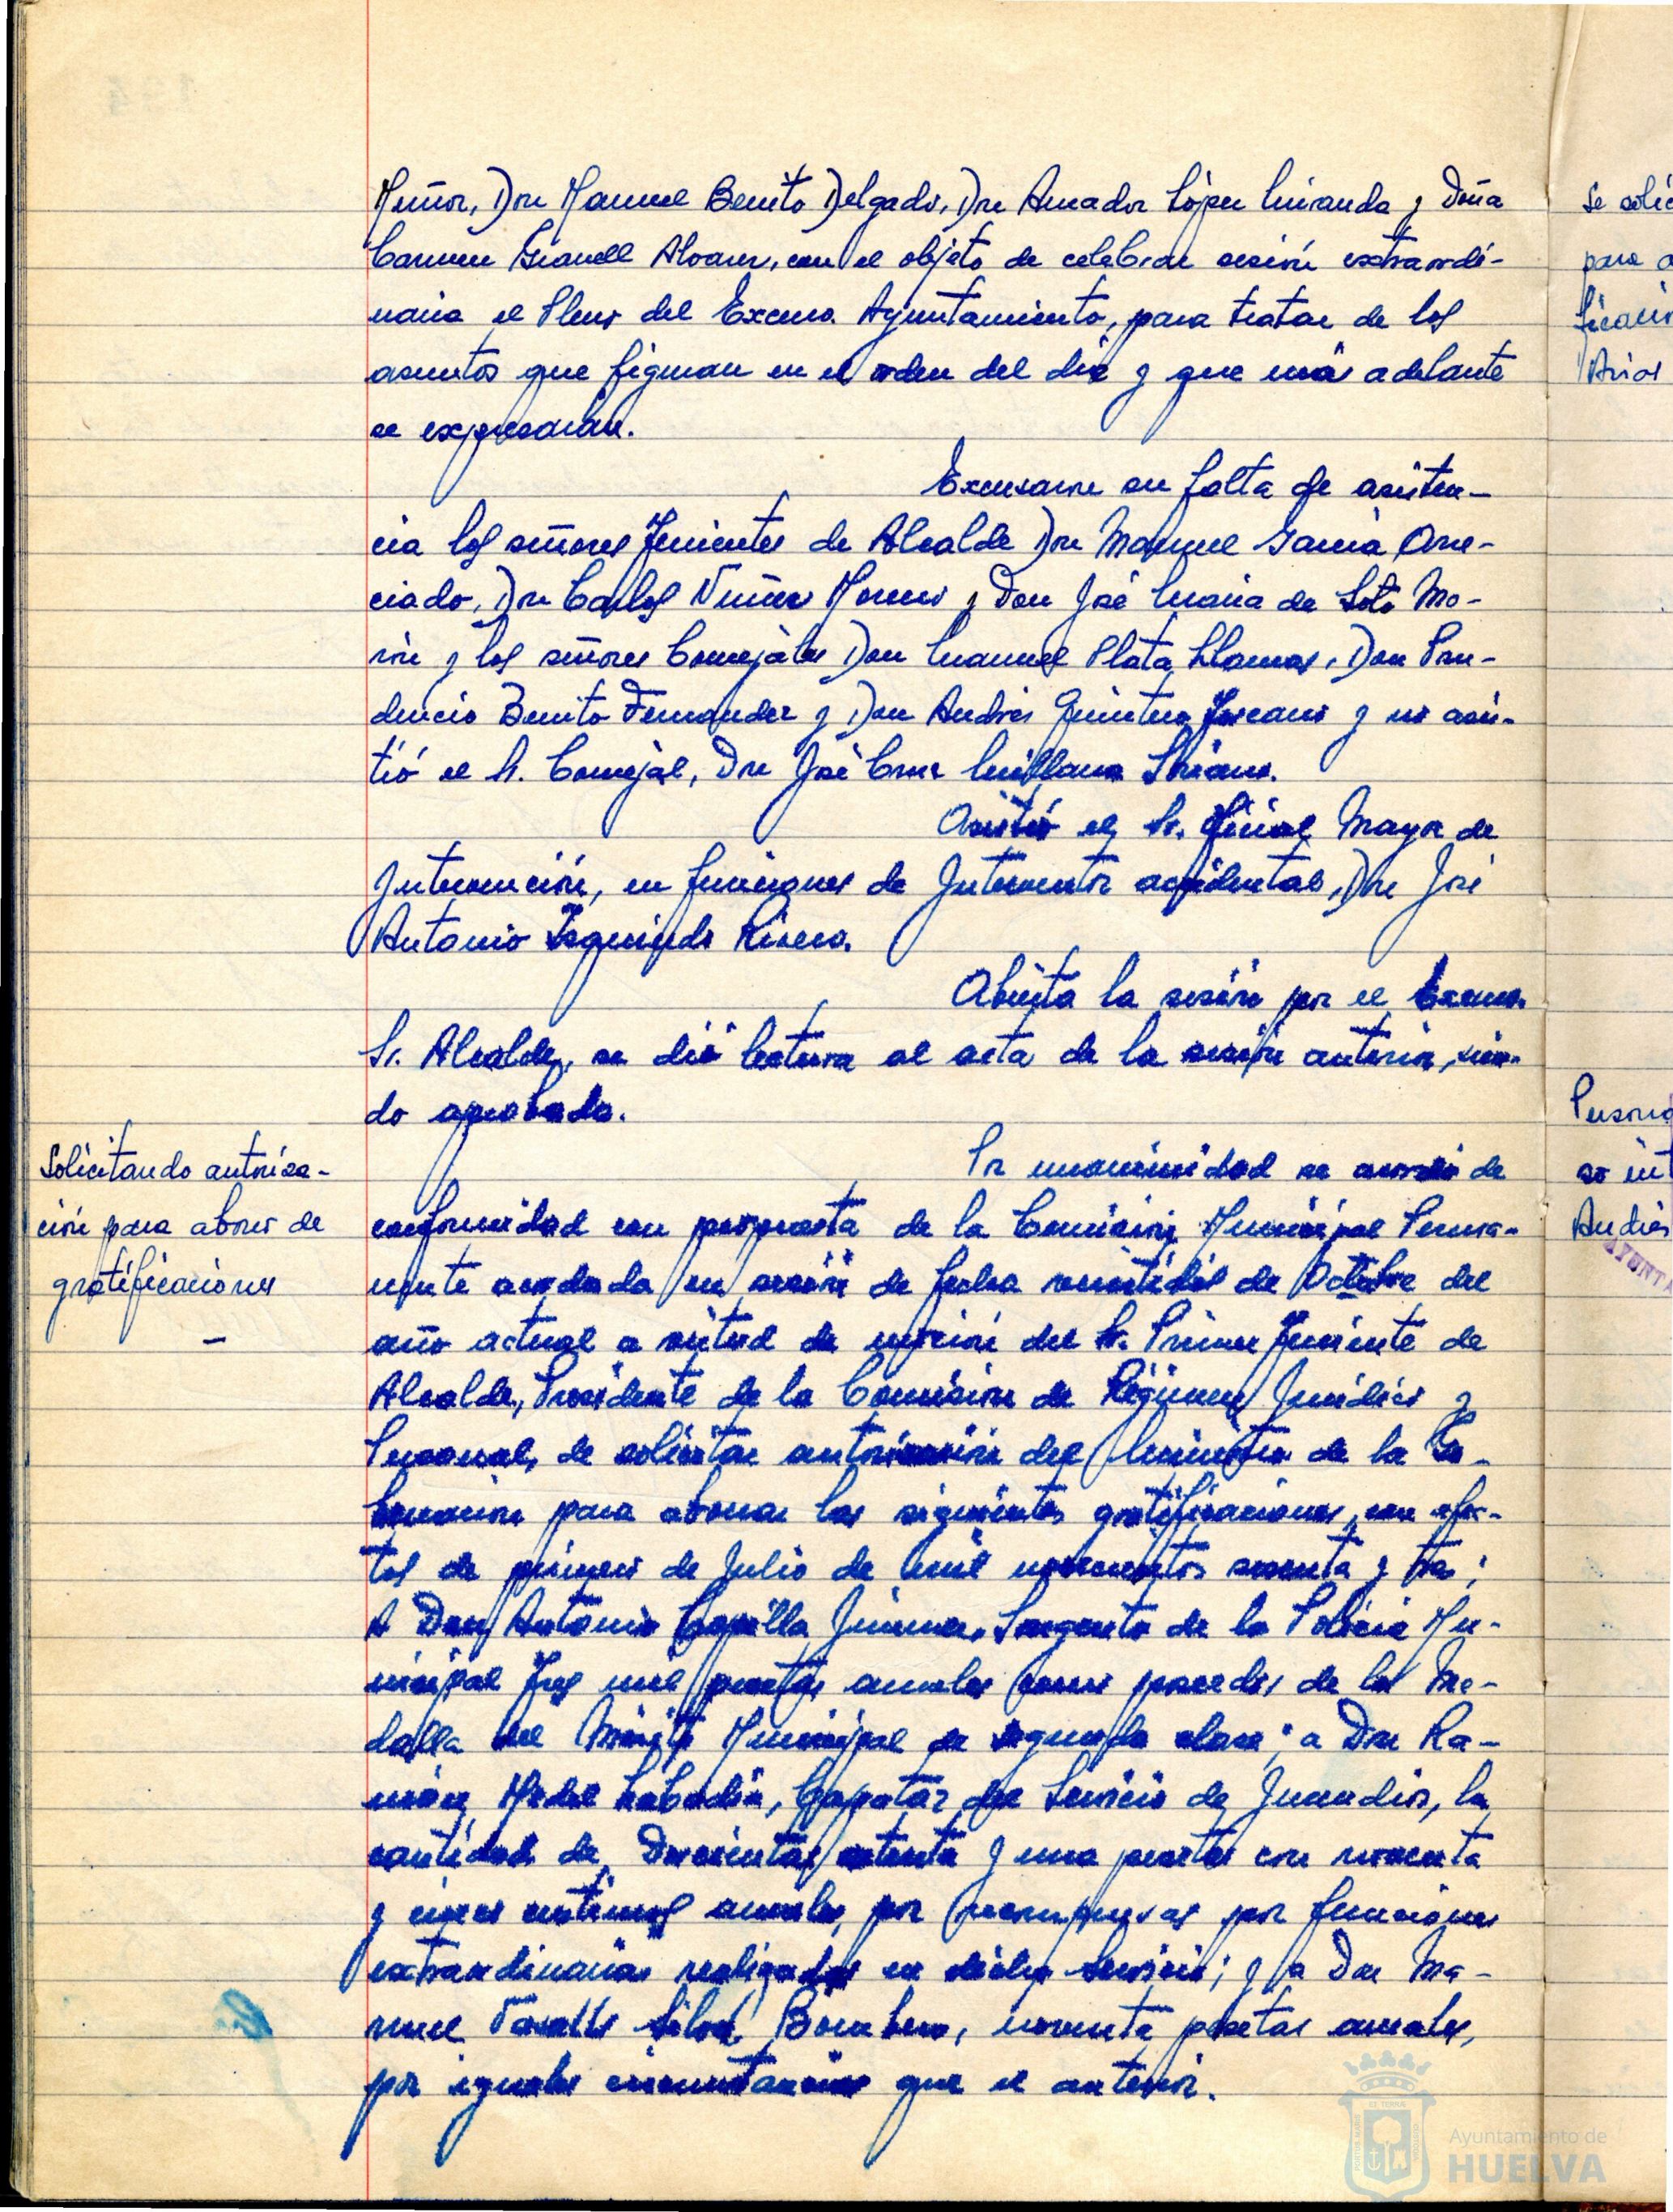 Muñoz, Don Manuel Benito Delgado, Don Amador López Miranda y Doña
Carmen Gianell Alvarez, con el objeto de celebrar sesión extraordi-
naria el Pleno del Excmo. Ayuntamiento, para tratar de los
asuntos que figuran en el orden del día y que más adelante
se expresarán.
Excusaron su falta de asisten-
cia los señores Tenientes de Alcalde Don Manuel García One-
ciado, Don Carlos Nuñez Moreno y Don José María de Soto Mo-
rón y los señores Concejales Don Manuel Plata Llamas, Don Pru-
dencio Benito Fernandez y Don Andrés Quintero Toscano y no asis-
tió el Sr. Concejal, Don José Cruz Millana Soriano.
Asistió el Sr. Oficial Mayor de
Intervención, en funciones de Interventor accidental, Don José
Antonio Izquierdo Rivero.
Abierta la sesión por el Excmo.
Sr. Alcalde, se dió lectura al acta de la sesión anterior, sien-
do aprobada.
Solicitando autoriza-
ción para abono de
gratificaciones
—
Por unanimidad se acordó de
conformidad con propuesta de la Comisión Municipal Perma-
nente acordada en sesión de fecha veintidós de Octubre del
año actual a virtud de moción del Sr. Primer Teniente de
Alcalde, Presidente de la Comisión de Régimen Jurídico y
Personal, de solicitar autorización del Ministro de la Go-
bernación para abonar las siguientes gratificaciones, con efec-
tos de primero de Julio de mil novecientos sesenta y tres;
A Don Antonio Capilla Jimenez, Sargento de la Policía Mu-
nicipal Tres mil pesetas anuales como poseedor de la Me-
dalla del Mérito Municipal de segunda clase; a Don Ra-
món Medel Labadía, Capataz del Servicio de Incendios, la
cantidad de Doscientas setenta y una pesetas con noventa
y cinco céntimos anuales, por recompensas por funciones
extraordinarias realizadas en dicho Servicio; y a Don Ma-
nuel Silva Bombero, noventa pesetas anuales,
por iguales circunstancias que el anterior.
Se solic
para a
ficacio
Arias
Persona
so int
Andrés
AYUNTA
Ayuntamiento de
HUELVA